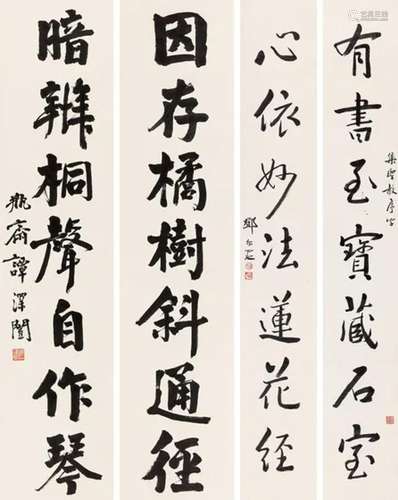 艺典在线
有書至寶藏石室
集聖教序字
心依妙法蓮花经
因存橘樹斜通徑
暗辨桐聲自作琴
瓶齋譚澤闓